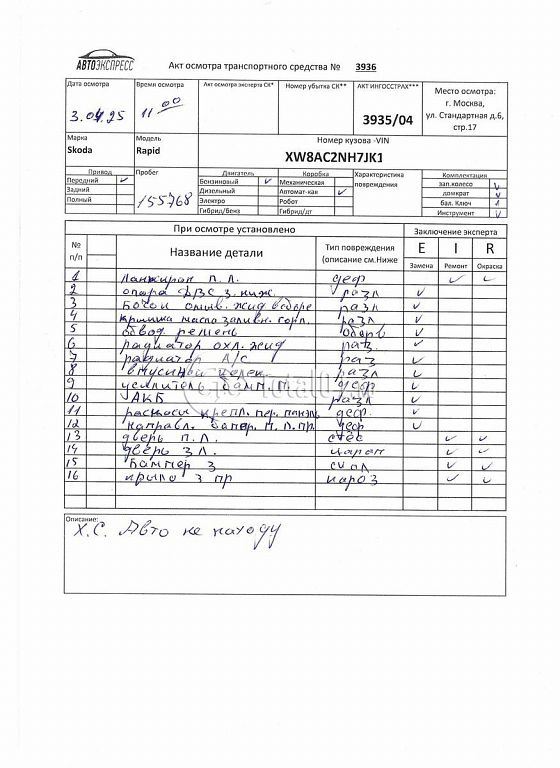 АВТОЭКСПРЕСС
Акт осмотра транспортного средства № 3936
Дата осмотра
3.04.25
Время осмотра
11 00
Акт осмотра эксперта СК*
Номер убытка СК**
АКТ ИНГОССТРАХ***
3935/04
Место осмотра:
г. Москва,
ул. Стандартная д.6,
стр.17
Марка
Skoda
Модель
Rapid
Номер кузова -VIN
XW8AC2NH7JK1
Привод
Передний ✓
Задний
Полный
Пробег
155768
Двигатель
Бензиновый ✓
Дизельный
Электро
Гибрид/бенз
Коробка
Механическая
Автомат-кая ✓
Робот
Гибрид/дт
Характеристика
повреждения
Комплектация
зап.колесо v
домкрат v
бал. Ключ 1
Инструмент v
При осмотре установлено
Заключение эксперта
№
п/п
Название детали
Тип повреждения
(описание см.Ниже
E I R
Замена Ремонт Окраска
1 Ланжирон П.Л. деф ✓ ✓
2 опора ДВС З. ниж. разл ✓
3 Бочок омыв. жид разл ✓
4 крышка масло заливн. горл. разл ✓
5 ремень ✓
6 радиатор охл. жид раз. ✓
7 радиатор А/С раз ✓
8 впускной колек. разл ✓
9 усилитель бамп. П. деф ✓
10 АКБ разл ✓
11 крепл. пер. деф. ✓
12 направл. бампер. П. Л. пр. деф ✓
13 дверь П.Л. ✓ ✓
14 дверь З Л. царап ✓ ✓
15 Бампер З скол ✓ ✓
16 крыло З пр ✓ ✓
Total01
Описание:
Х.С. Авто не на ходу